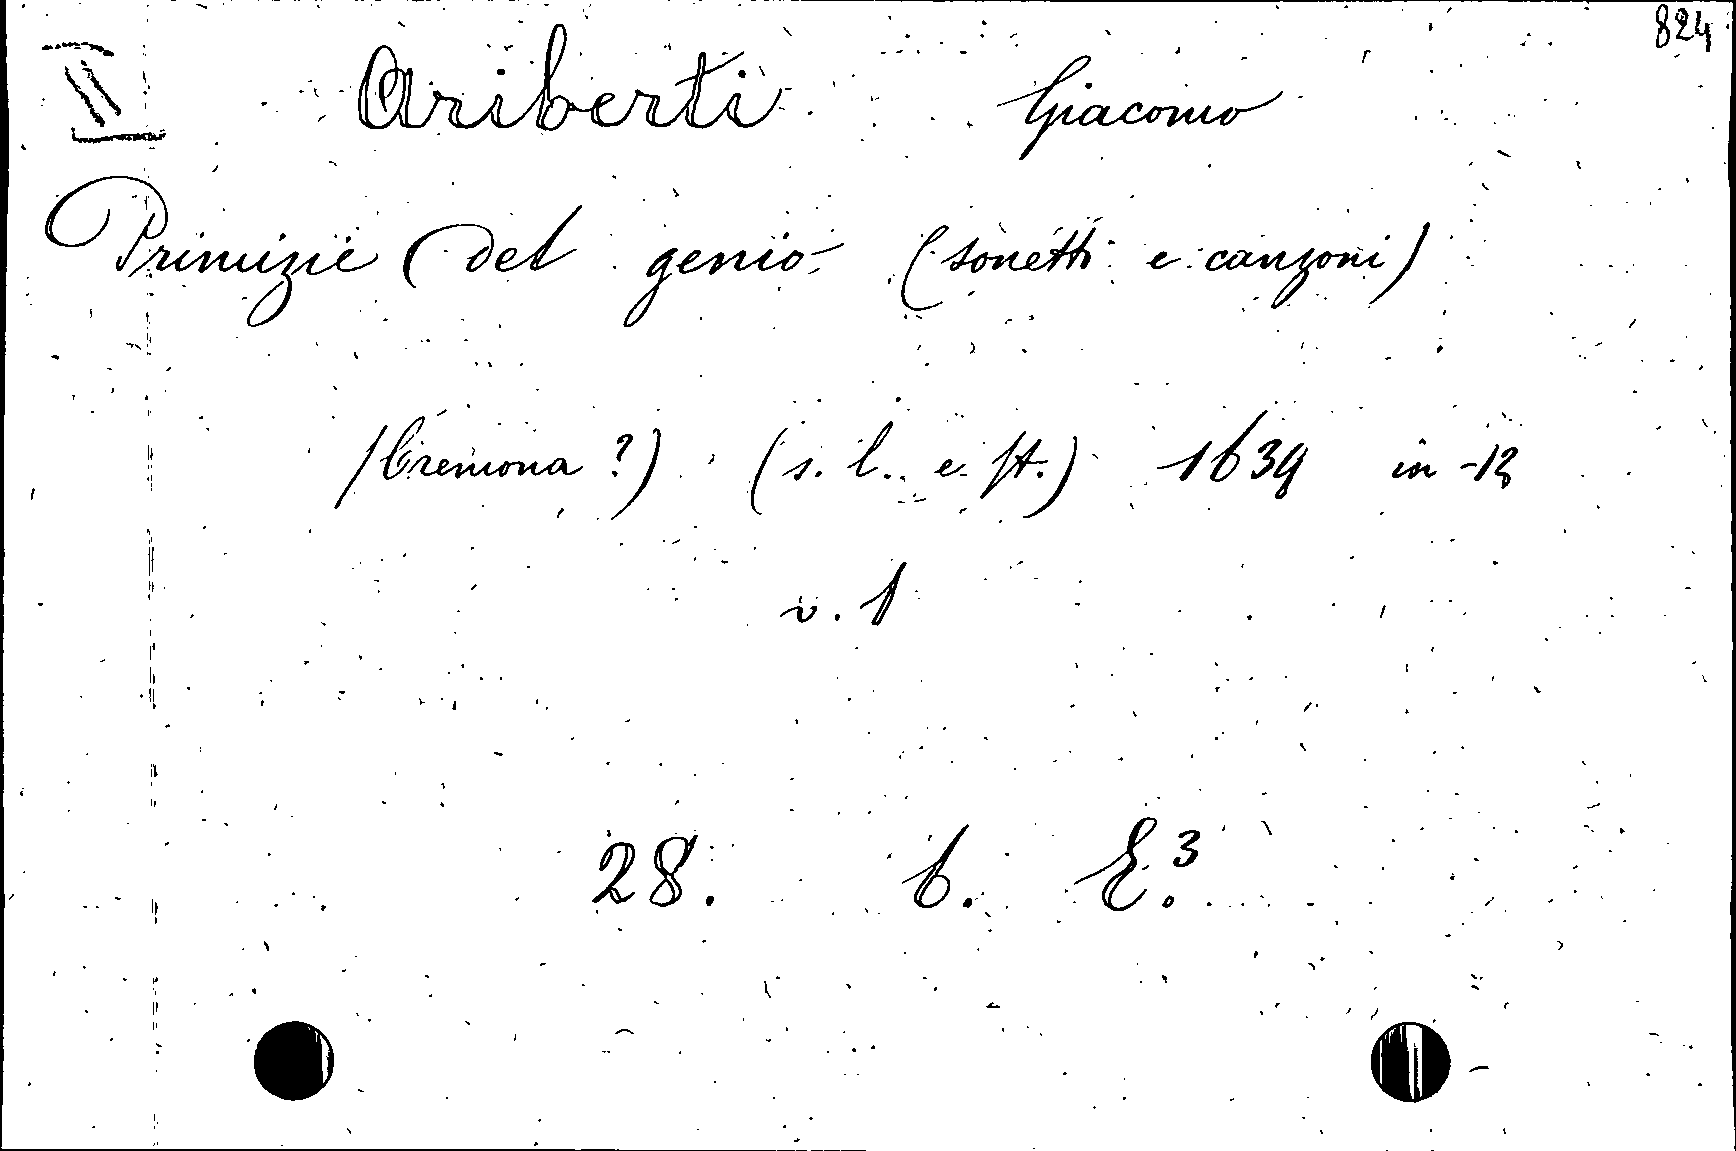 824
II Ariberti Giacomo
Primizie del genio (sonetti e canzoni)
(Cremona ?) (s. l. e st.) 1639 in-12
v. 1
28. 6. E.3